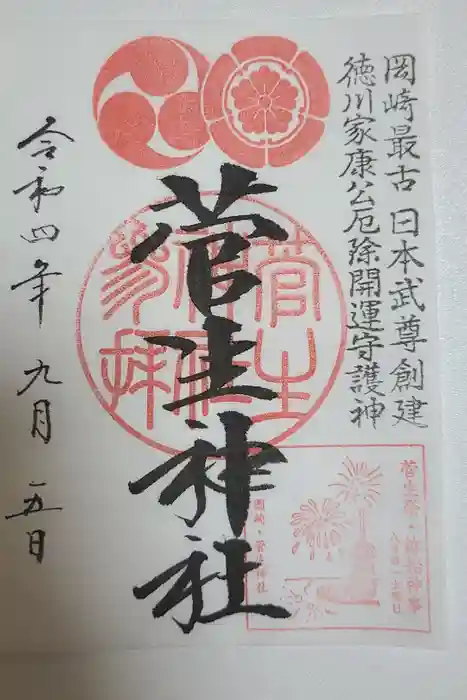 岡崎最古 日本武尊創建
徳川家康公厄除開運守護神
菅生神社
令和四年 九月 五日
菅生祭・鉾船神事
岡崎・菅生神社